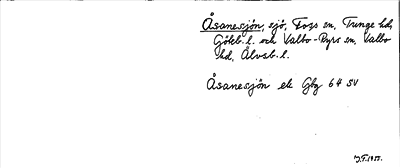 Åsanesjön, sjö, Foss sn, Tunge hd,
Göteb. l. och Valbo-Ryrs sn, Valbo
hd, Älvsb. l.
Åsanesjön ek Gbg 64 SV
J.F. 1933.